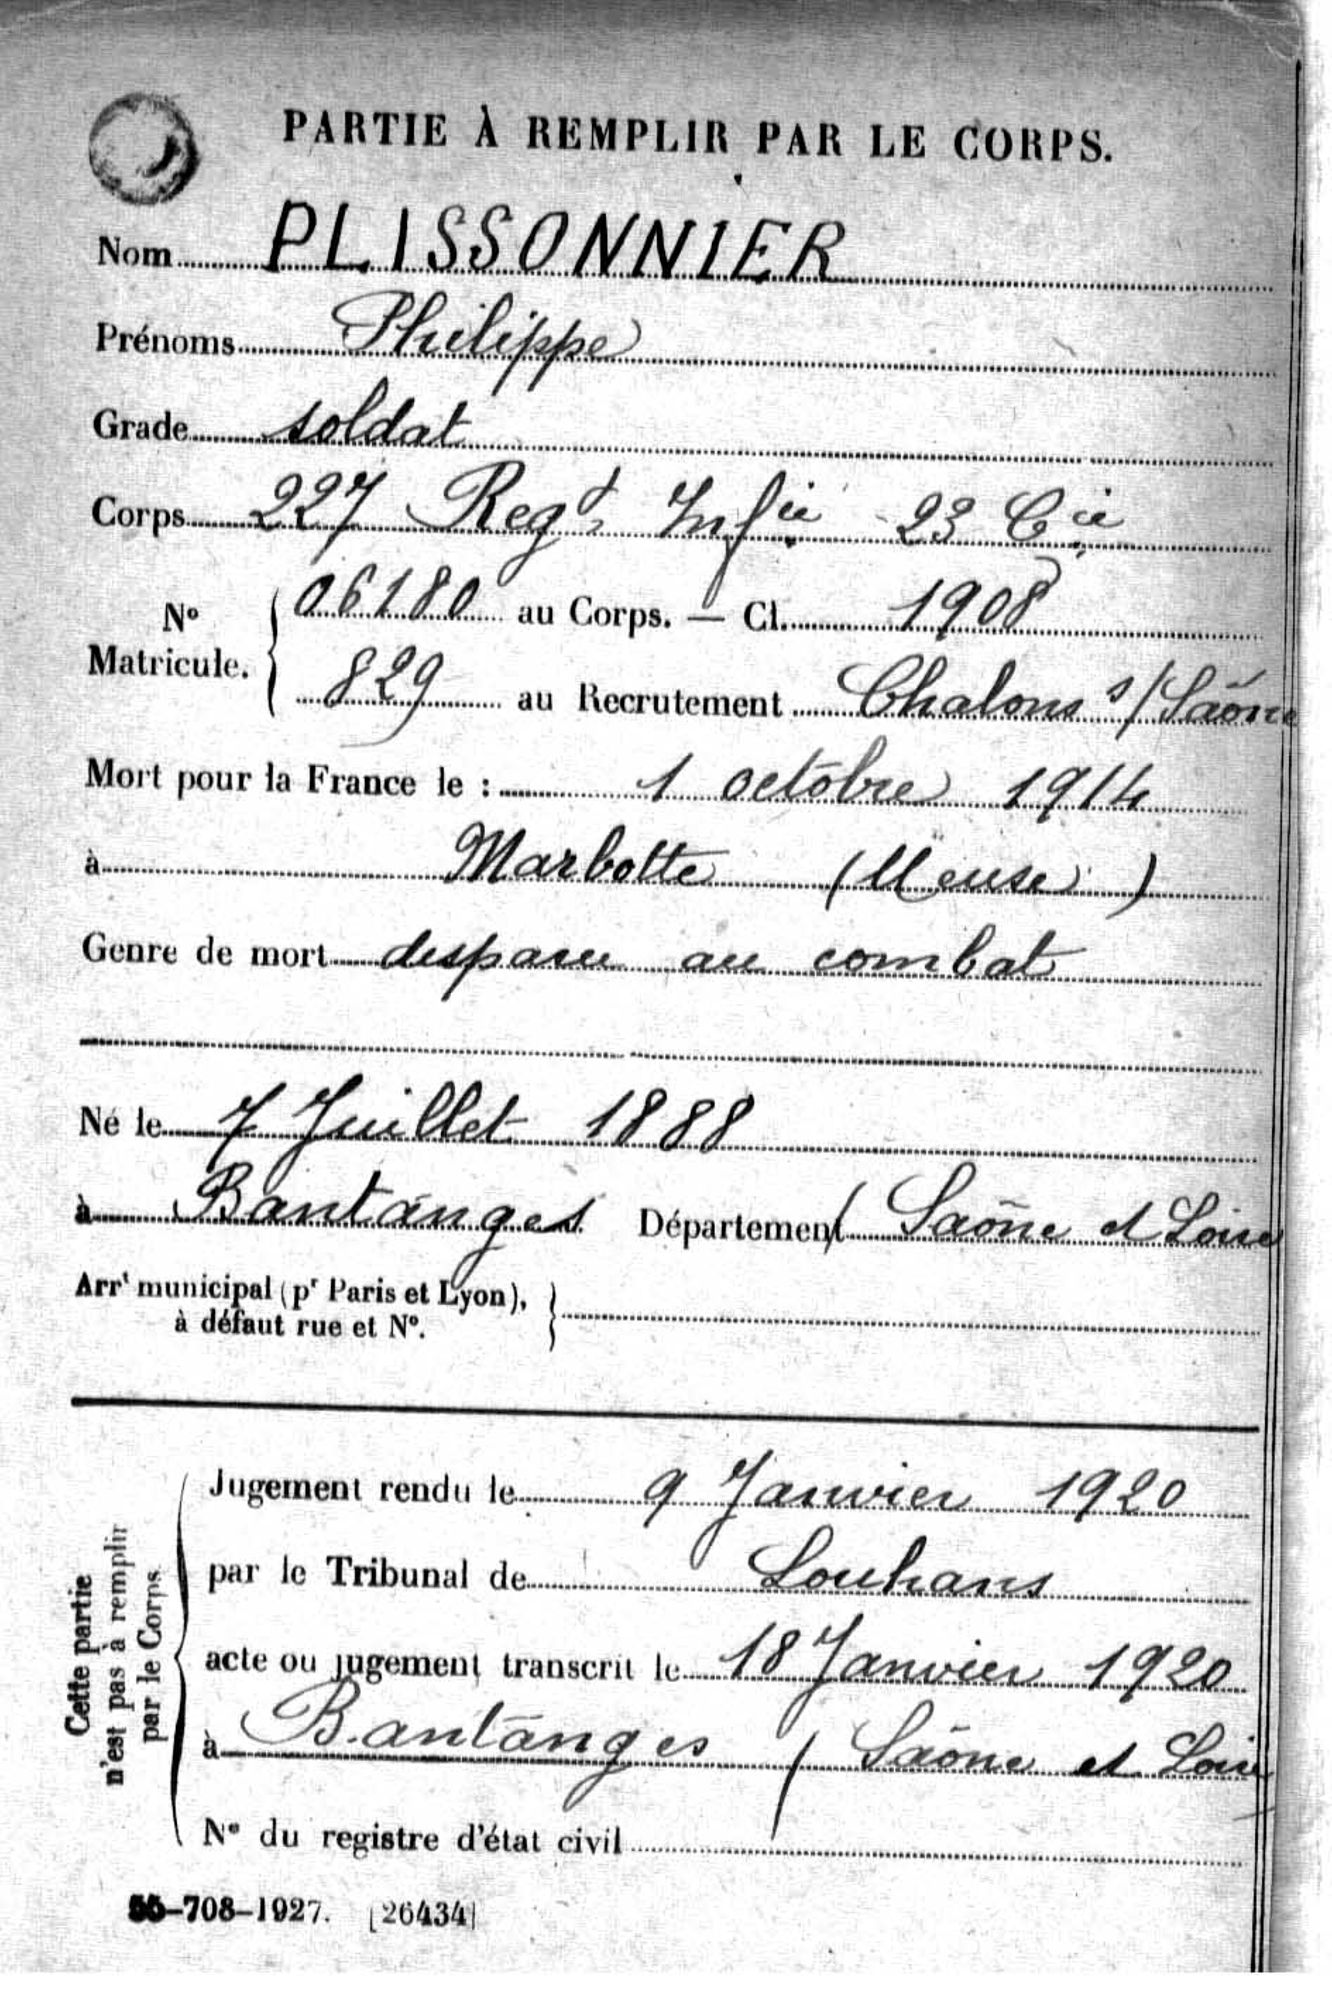 PARTIE À REMPLIR PAR LE CORPS.
Nom PLISSONNIER
Prénoms Philippe
Grade soldat
Corps 227 Regt Infie 23 Cie
No Matricule. 06180 au Corps. — Cl. 1908
829 au Recrutement Chalons s/Saône
Mort pour la France le : 1 octobre 1914
à Marbotte (Meuse)
Genre de mort disparu au combat
Né le 7 Juillet 1888
à Bantanges Département Saône et Loire
Arrt municipal (pr Paris et Lyon),
à défaut rue et No.
Cette partie
n'est pas à remplir
par le Corps.
Jugement rendu le 9 Janvier 1920
par le Tribunal de Louhans
acte ou jugement transcrit le 18 Janvier 1920
à Bantanges (Saône et Loire
No du registre d'état civil
-708-1927. [26434]